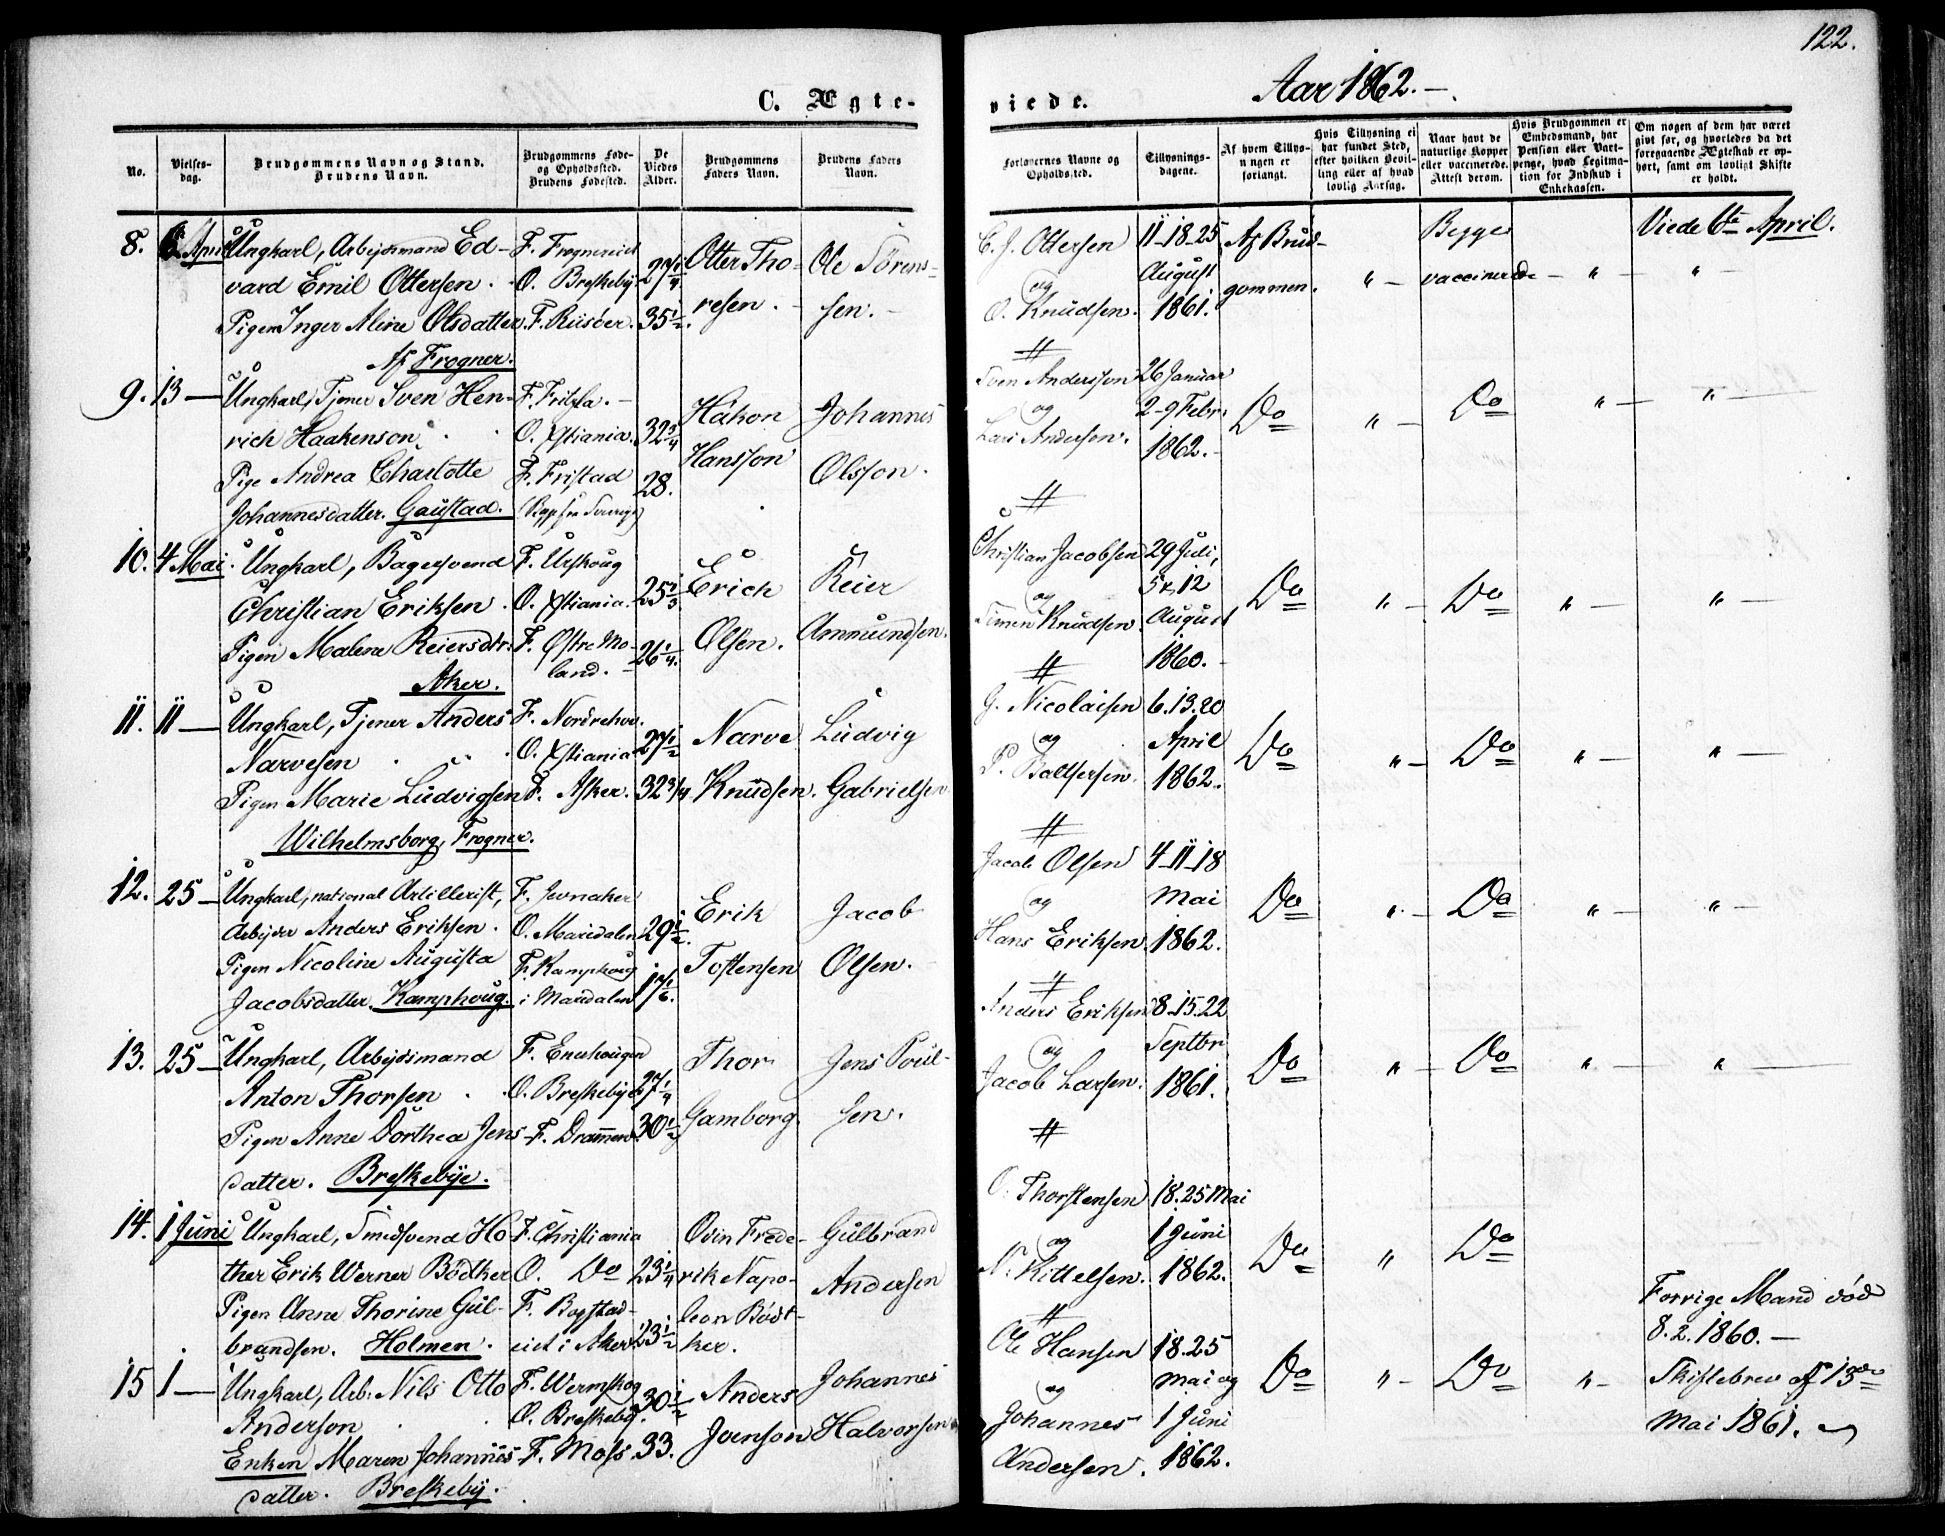 122.
C. Ægte-
viede.
Aar 1862.
No.
Vielses-
dag.
Brudgommens Navn og Stand.
Brudens Navn.
Brudgommens Føde-
og Opholdssted.
Brudens Fødested.
De
Viedes
Alder.
Brudgommens
Faders Navn.
Brudens Faders
Navn.
Forlovernes Navne og
Opholdssted.
Tillysnings-
dagene.
Af hvem Tillys-
ningen er
forlangt.
Hvis Tillysning ei
har fundet Sted,
efter hvilken Bevil-
ling eller af hvad
lovlig Aarsag.
Naar havt de
naturlige Kopper
eller vaccinerede.
Attest derom.
Hvis Brudgommen er
Embedsmand, har
Pension eller Vart-
penge, hvad Legitima-
tion for Indskud i
Enkekassen.
Om nogen af dem har været
gift før, og hvorledes da det
foregaaende Ægteskab er op-
hørt, samt om lovligt Skifte
er holdt.
8. 6 April Ungkarl, Arbejdsmand Ed-
vard Emil Ottersen.
Pigen Inger Aline Olsdatter
Af Frogner.
F. Frogneriet
O. Breskeby
F. Riisöer.
27 1/4
35 1/2.
Otter Tho-
resen.
Ole Sörens-
sen.
C. J. Ottersen
og
O. Knudsen.
11-18-25
August
1861.
Af Brud-
gommen.
" -
Begge
vaccinerede
- " -
" -
Viede 6te April.
9. 13 - Ungkarl, Tjener Sven Hen-
rich Haakenson.
Pige Andrea Charlotte
Johannesdatter. Gaustad.
F. Fritsla.
O. Xstiania.
F. Fristad
32 3/4
28.
Håkon
Hansson
Johannes
Olsson.
Sven Andersson
og
Lars Andersen.
26 Januar
2-9 Febr.
1862.
Do
" -
Do
" -
" -
10. 4 Mai. Ungkarl, Bagersvend
Christian Eriksen.
Pigen Malene Reiersdtr.
Aker.
F. Urskoug
O. Xstiania.
F. Østre Mo-
land.
25 1/3
26 1/4.
Erich
Olsen.
Reier
Ammundsen.
Christian Jacobsen
og
Simen Knudsen
29 Juli,
5 & 12
August
1860.
Do
" -
Do
" -
" -
11. 11 - Ungkarl, Tjener Anders
Narvesen
Pigen Marie Ludvigsen
Wilhelmsborg, Frogner.
F. Nordrehov.
O. Xstiania
F. Asker.
27 1/2
32 3/4
Narve
Knudsen.
Ludvig
Gabrielsen
G. Nicolaisen
og
P. Baltsersen.
6.13.20
April
1862.
Do
" -
Do
" -
" -
12. 25 - Ungkarl, national Artillerist,
Arbejder Anders Eriksen.
Pigen Nicoline Augusta
Jacobsdatter. Kamphoug.
F. Jevnaker
O. Maridalen
F. Kamphoug
i Maridalen
29 1/2.
17 1/6.
Erik
Tostensen
Jacob
Olsen.
Jacob Olsen
og
Hans Eriksen.
4-11-18
Mai
1862.
Do
" -
Do
" -
" -
13. 25 - Ungkarl, Arbejdsmand
Anton Thorsen
Pigen Anne Dorthea Jens-
datter. Breskebye.
F. Enerhougen
O. Breskebye
F. Drammen
27 1/4
30 1/2
Thor
Gamborg
Jens Poul-
sen.
Anders Eriksen
og
Jacob Larsen.
8.15.22
Septbr
1861.
Do
" -
Do
" -
" -
14. 1 Juni Ungkarl, Smedsvend Ho-
ther Erik Werner Bödtker
Pigen Anne Thorine Gul-
brandsen. Holmen.
F. Christiania
O. Do
F. Bogstad-
eiet i Aker
23 1/4
23 1/2
Odin Frede-
rik Napo-
leon Bödt-
ker.
Gulbrand
Andersen
O. Thorstensen
og
N. Kittelsen.
18.25 Mai
1 Juni
1862.
Do
"
Do
15 1 - Ungkarl, Arb: Nils Otto
Anderson
Enken Maren Johannes-
datter. Breskeby.
F. Wermskog
O. Breskeby.
F. Moss
30 1/2
33.
Anders
Joenson
Johannes
Halvorsen
Ole Hansen
og
Johannes
Andersen.
18.25
Mai og
1 Juni
1862.
Do
" -
Do
" -
Forrige Mand död
8.2.1860. -
Skiftebrev af 15de
Mai 1861.